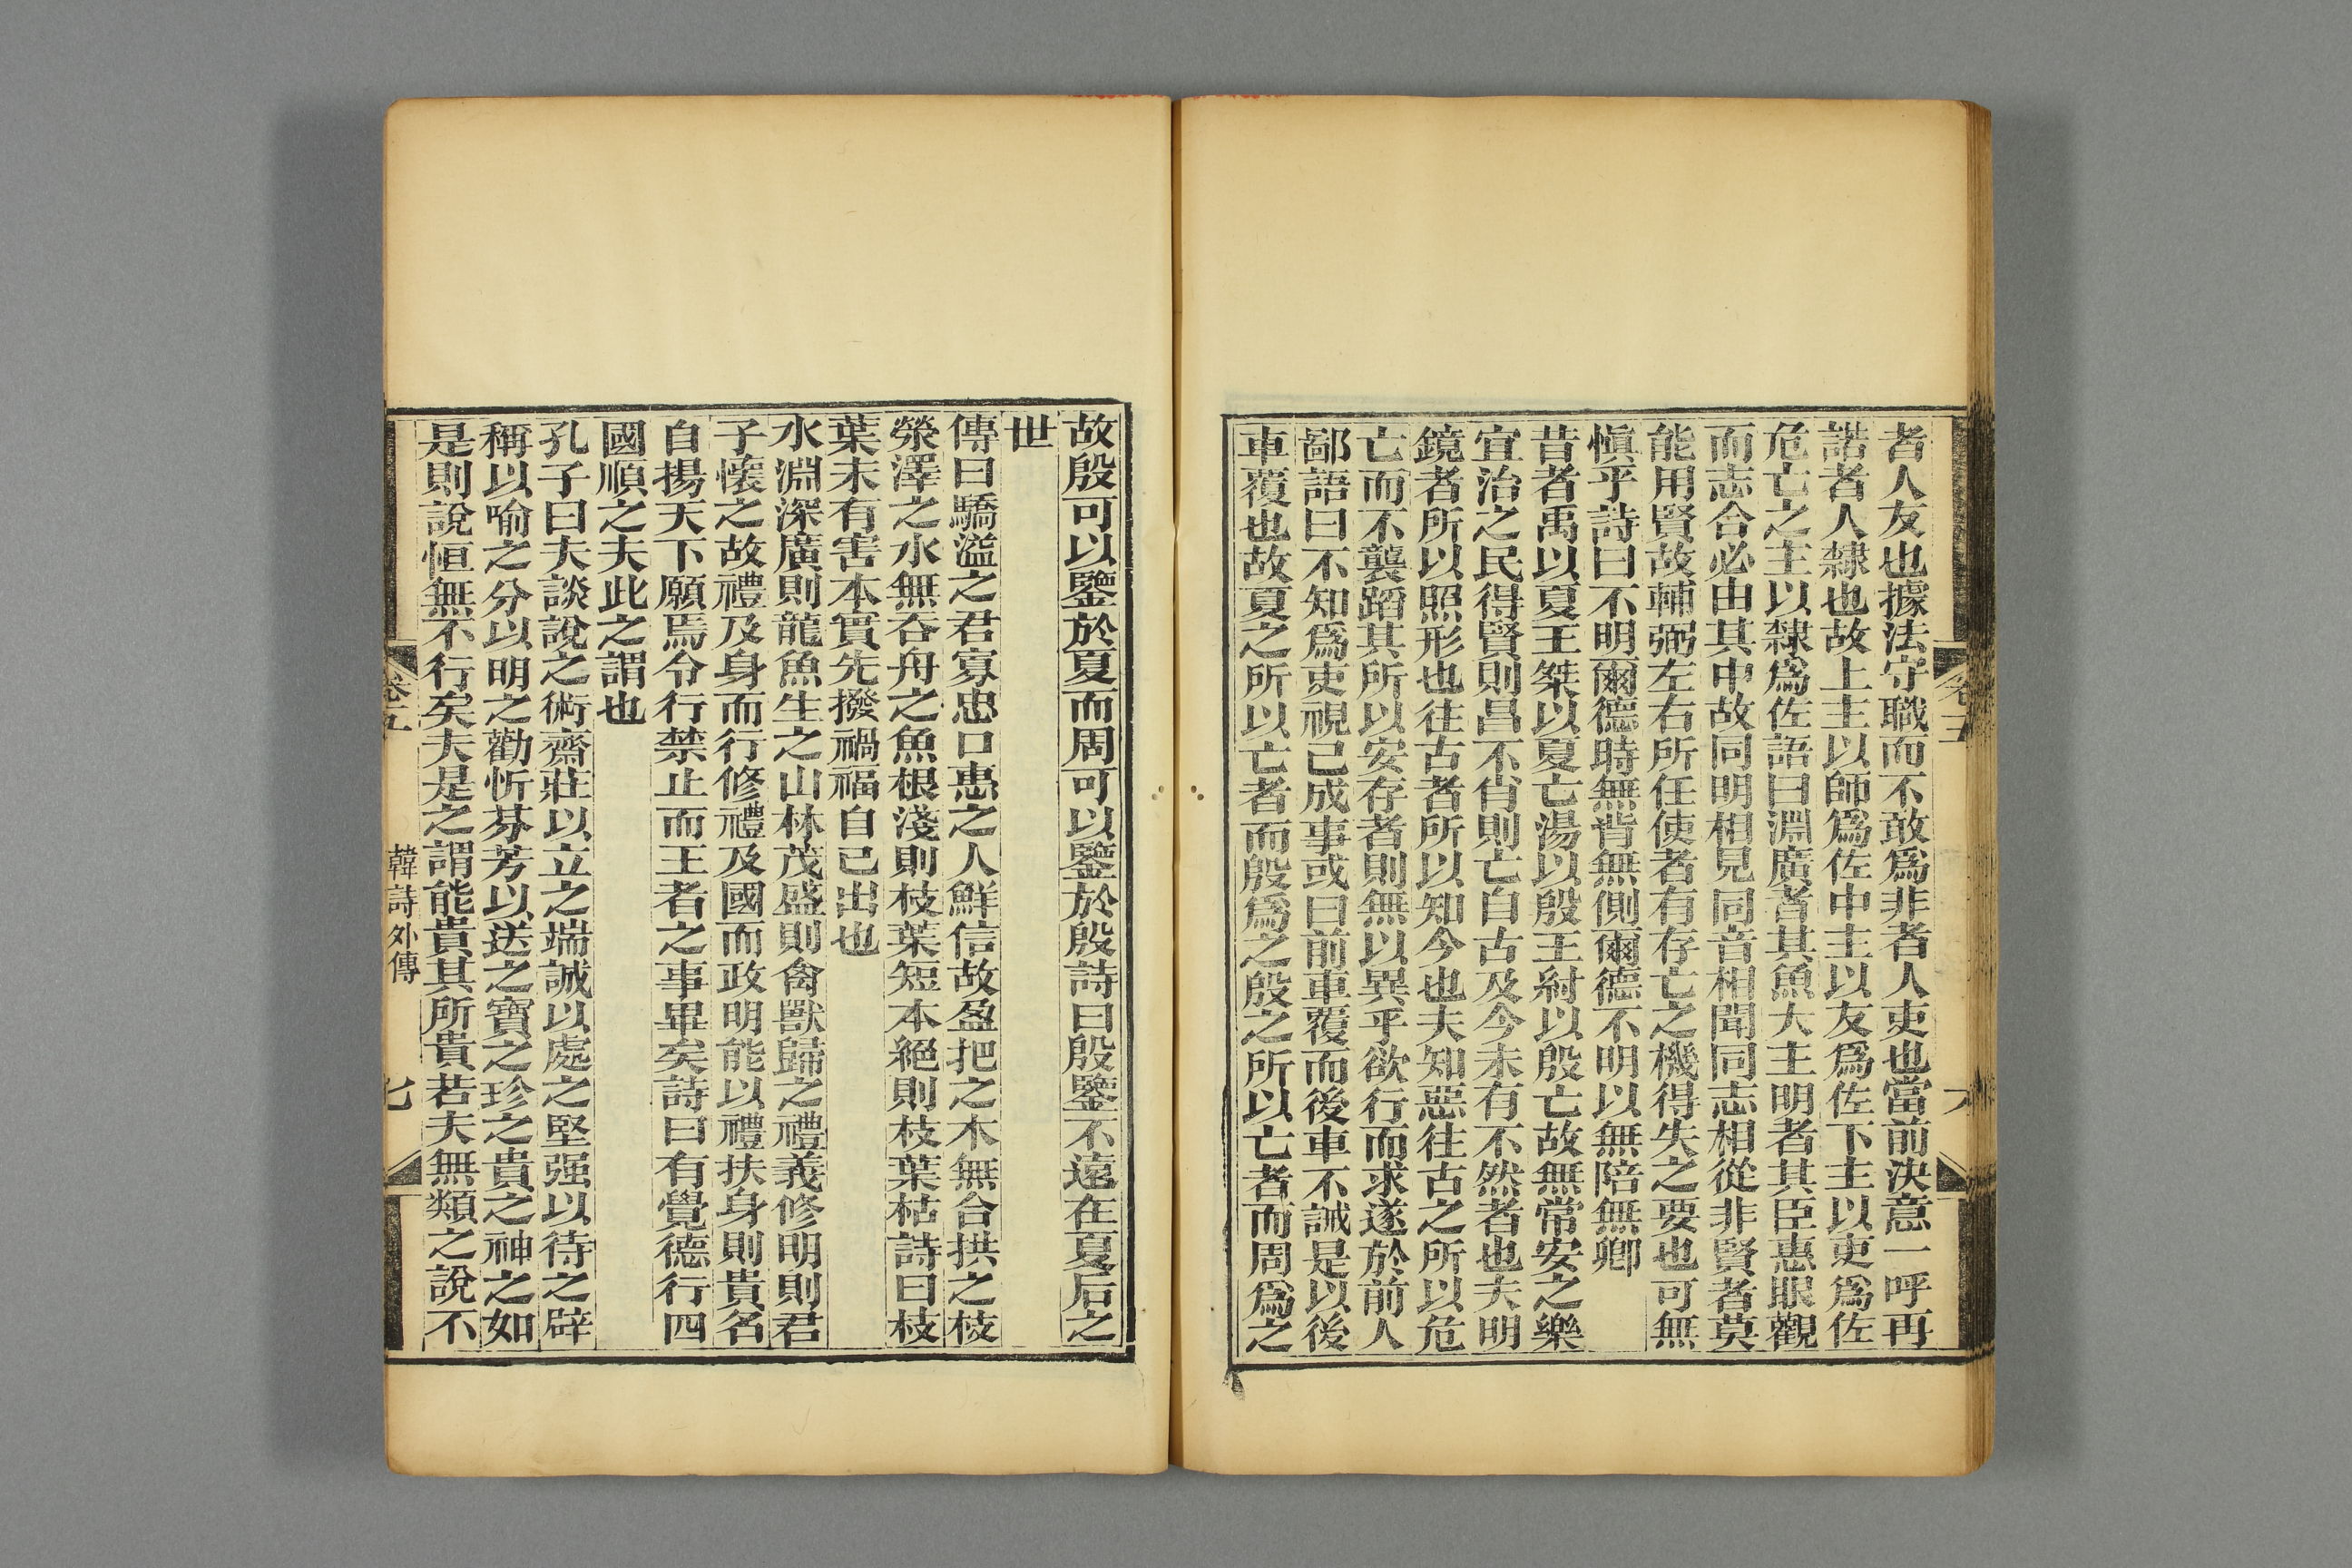 者人友也據法守職而不敢爲非者人吏也當前決意一呼再
諾者人隸也故上主以師爲佐中主以友爲佐下主以吏爲佐
危亡之主以隸爲佐語曰淵廣者其魚大主明者其臣惠眼觀
而志合必由其中故同明相見同音相聞同志相從非賢者莫
能用賢故輔弼左右所任使者有存亡之機得失之要也可無
愼乎詩曰不明爾德時無背無側爾德不明以無陪無卿
昔者禹以夏王桀以夏亡湯以殷王紂以殷亡故無常安之樂
宜治之民得賢則昌不肖則亡自古及今未有不然者也夫明
鏡者所以照形也往古者所以知今也夫知惡往古之所以危
亡而不襲蹈其所以安存者則無以異乎欲行而求遂於前人
鄙語曰不知爲吏視已成事或曰前車覆而後車不誡是以後
車覆也故夏之所以亡者而殷爲之殷之所以亡者而周爲之
卷五
六
故殷可以鑒於夏而周可以鑒於殷詩曰殷鑒不遠在夏后之
世
傳曰驕溢之君寡忠口惠之人鮮信故盈把之木無合拱之枝
滎澤之水無吞舟之魚根淺則枝葉短本絕則枝葉枯詩曰枝
葉未有害本實先撥禍福自已出也
水淵深廣則龍魚生之山林茂盛則禽獸歸之禮義修明則君
子懷之故禮及身而行修禮及國而政明能以禮扶身則貴名
自揚天下願焉令行禁止而王者之事畢矣詩曰有覺德行四
國順之夫此之謂也
孔子曰夫談說之術齋莊以立之端誠以處之堅强以待之辟
稱以喻之分以明之勸忻芬芳以送之寶之珍之貴之神之如
是則說恒無不行矣夫是之謂能貴其所貴若夫無類之說不
卷五
韓詩外傳
七